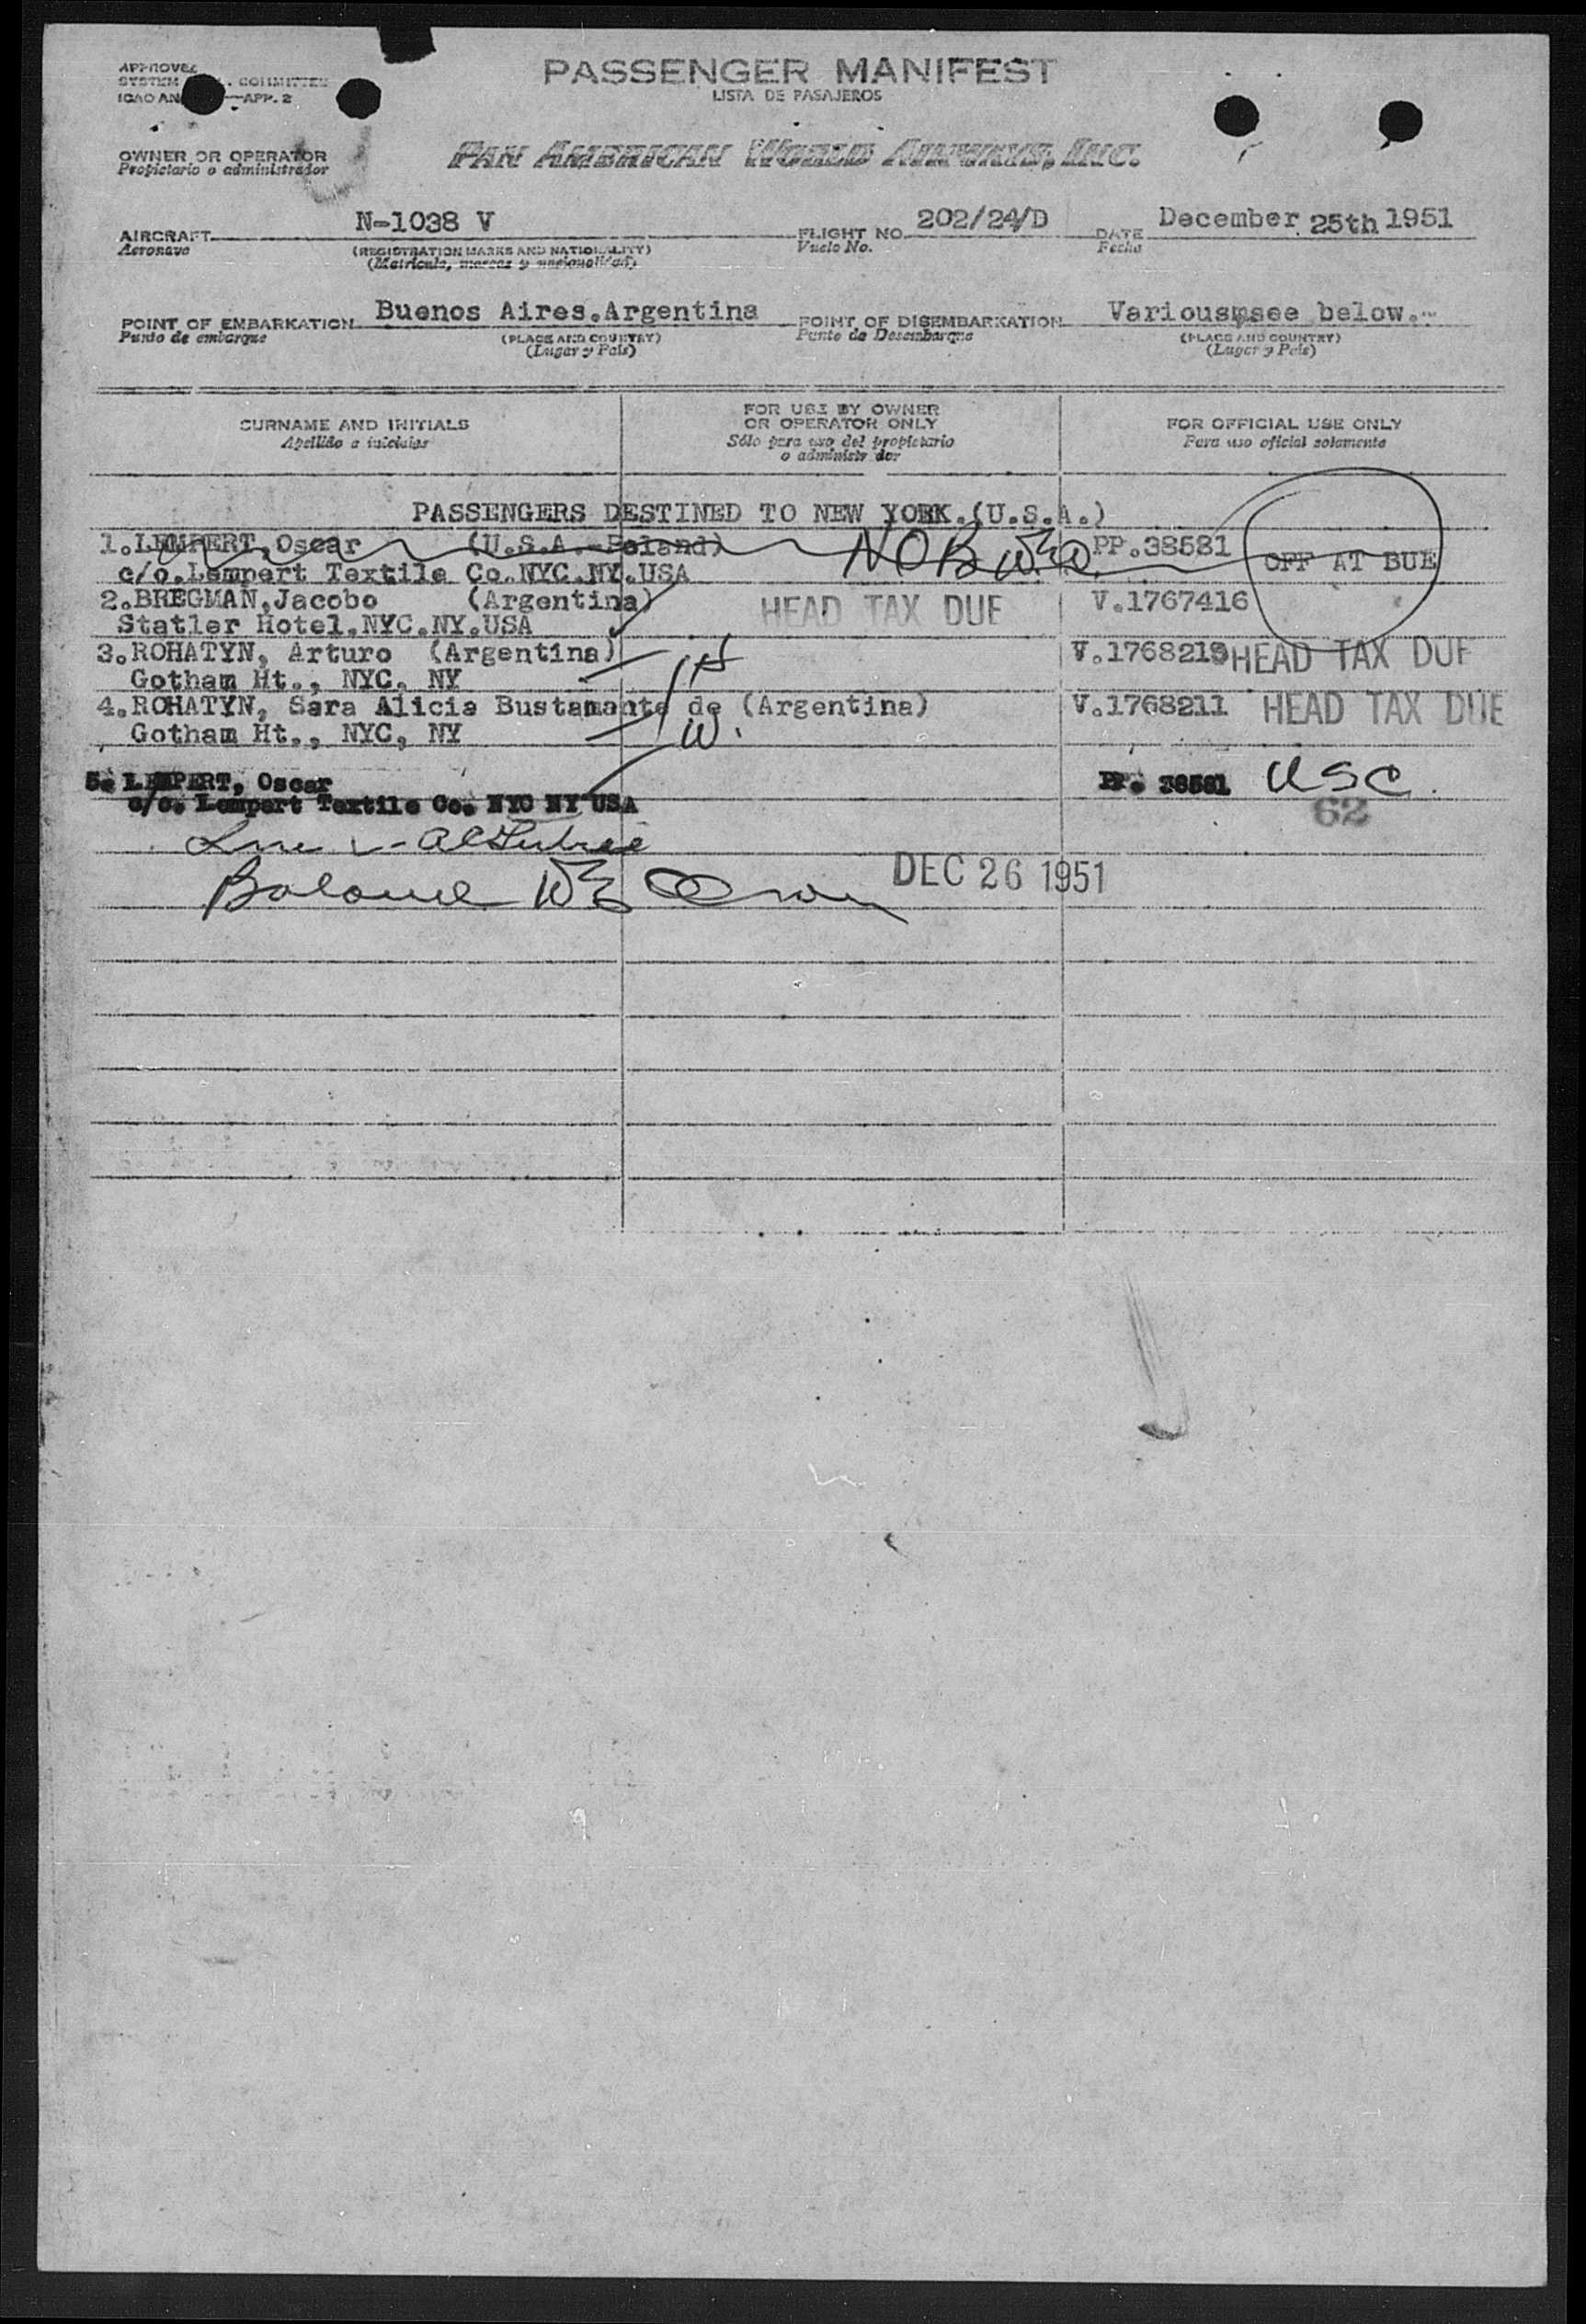 APPROVED
SYSTEM COMMITTEE
ICAO AN APP. 2
PASSENGER MANIFEST
LISTA DE PASAJEROS
OWNER OR OPERATOR
Propietario o administrador
PAN AMERICAN WORLD AIRWAYS, INC.
AIRCRAFT N-1038 V FLIGHT NO. 202/24/D DATE December 25th 1951
Aeronave (REGISTRATION MARKS AND NATIONALITY) Vuelo No. Fecha
(Matricula, marcas y nacionalidad)
POINT OF EMBARKATION Buenos Aires.Argentina POINT OF DISEMBARKATION Variousmsee below.-
Punto de embarque (PLACE AND COUNTRY) Punto de Desembarque (PLACE AND COUNTRY)
(Lugar y Pais) (Lugar y Pais)
SURNAME AND INITIALS FOR USE BY OWNER OR OPERATOR ONLY FOR OFFICIAL USE ONLY
Apellido e iniciales Sólo para uso del propietario o administrador Para uso oficial solamente
PASSENGERS DESTINED TO NEW YORK.(U.S.A.)
1.LEMPERT,Oscar (U.S.A.-Poland) NOB PP.38581 OFF AT BUE
c/o.Lempert Textile Co.NYC.NY.USA
2.BREGMAN,Jacobo (Argentina) HEAD TAX DUE V.1767416
Statler Hotel.NYC.NY.USA
3.ROHATYN, Arturo (Argentina) H V.1768213 HEAD TAX DUE
Gotham Ht., NYC, NY
4.ROHATYN, Sara Alicia Bustamante de (Argentina) V.1768211 HEAD TAX DUE
Gotham Ht., NYC, NY W.
5. LEMPERT, Oscar PP. 38581 USC.
c/o. Lempert Textile Co. NYC NY USA 62
DEC 26 1951